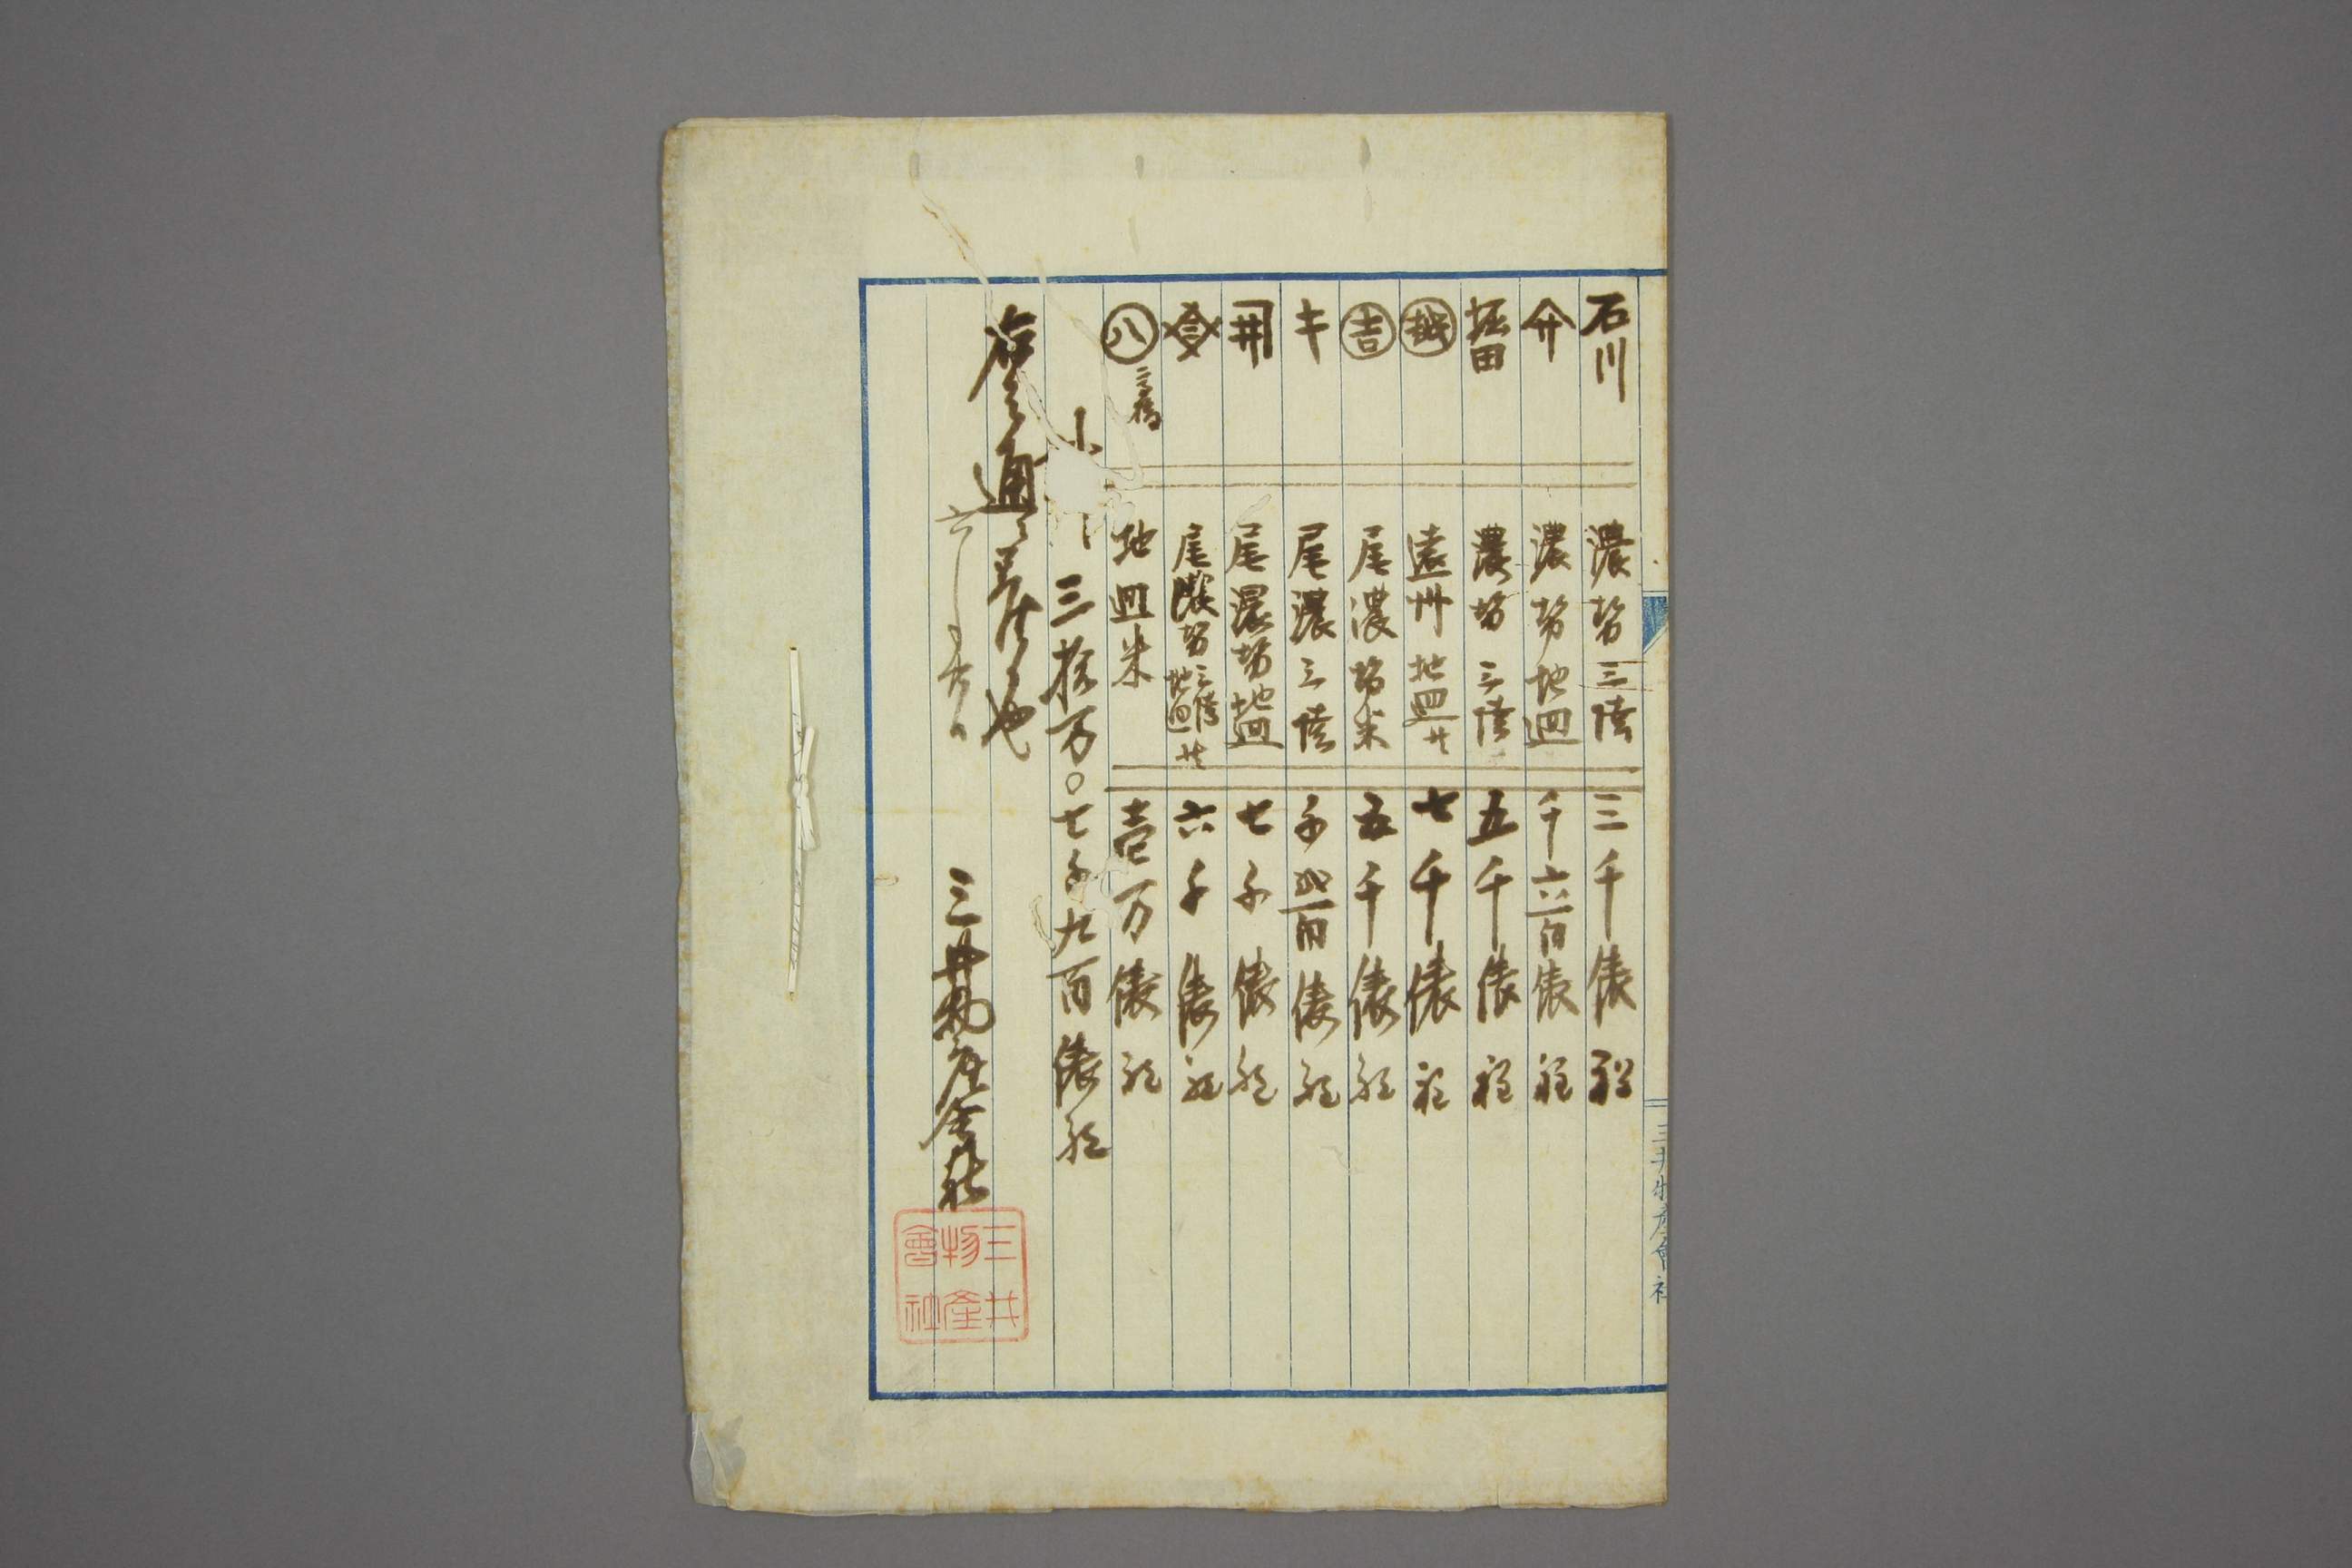 石川 濃勢三陸 三千俵程
濃勢地廻 千六百俵程
堀田 濃勢三陸 五千俵程
越 遠州地廻共 七千俵程
吉 尾濃勢米 五千俵程
キ 尾濃三陸 千弐百俵程
井 尾濃勢地廻 七千俵程
尾濃勢三陸地廻共 六千俵程
八 地廻米 壱万俵程
三拾万〇七千九百俵程
右之通御座候也
三井物産会社
三井物産會社
三井物産會社